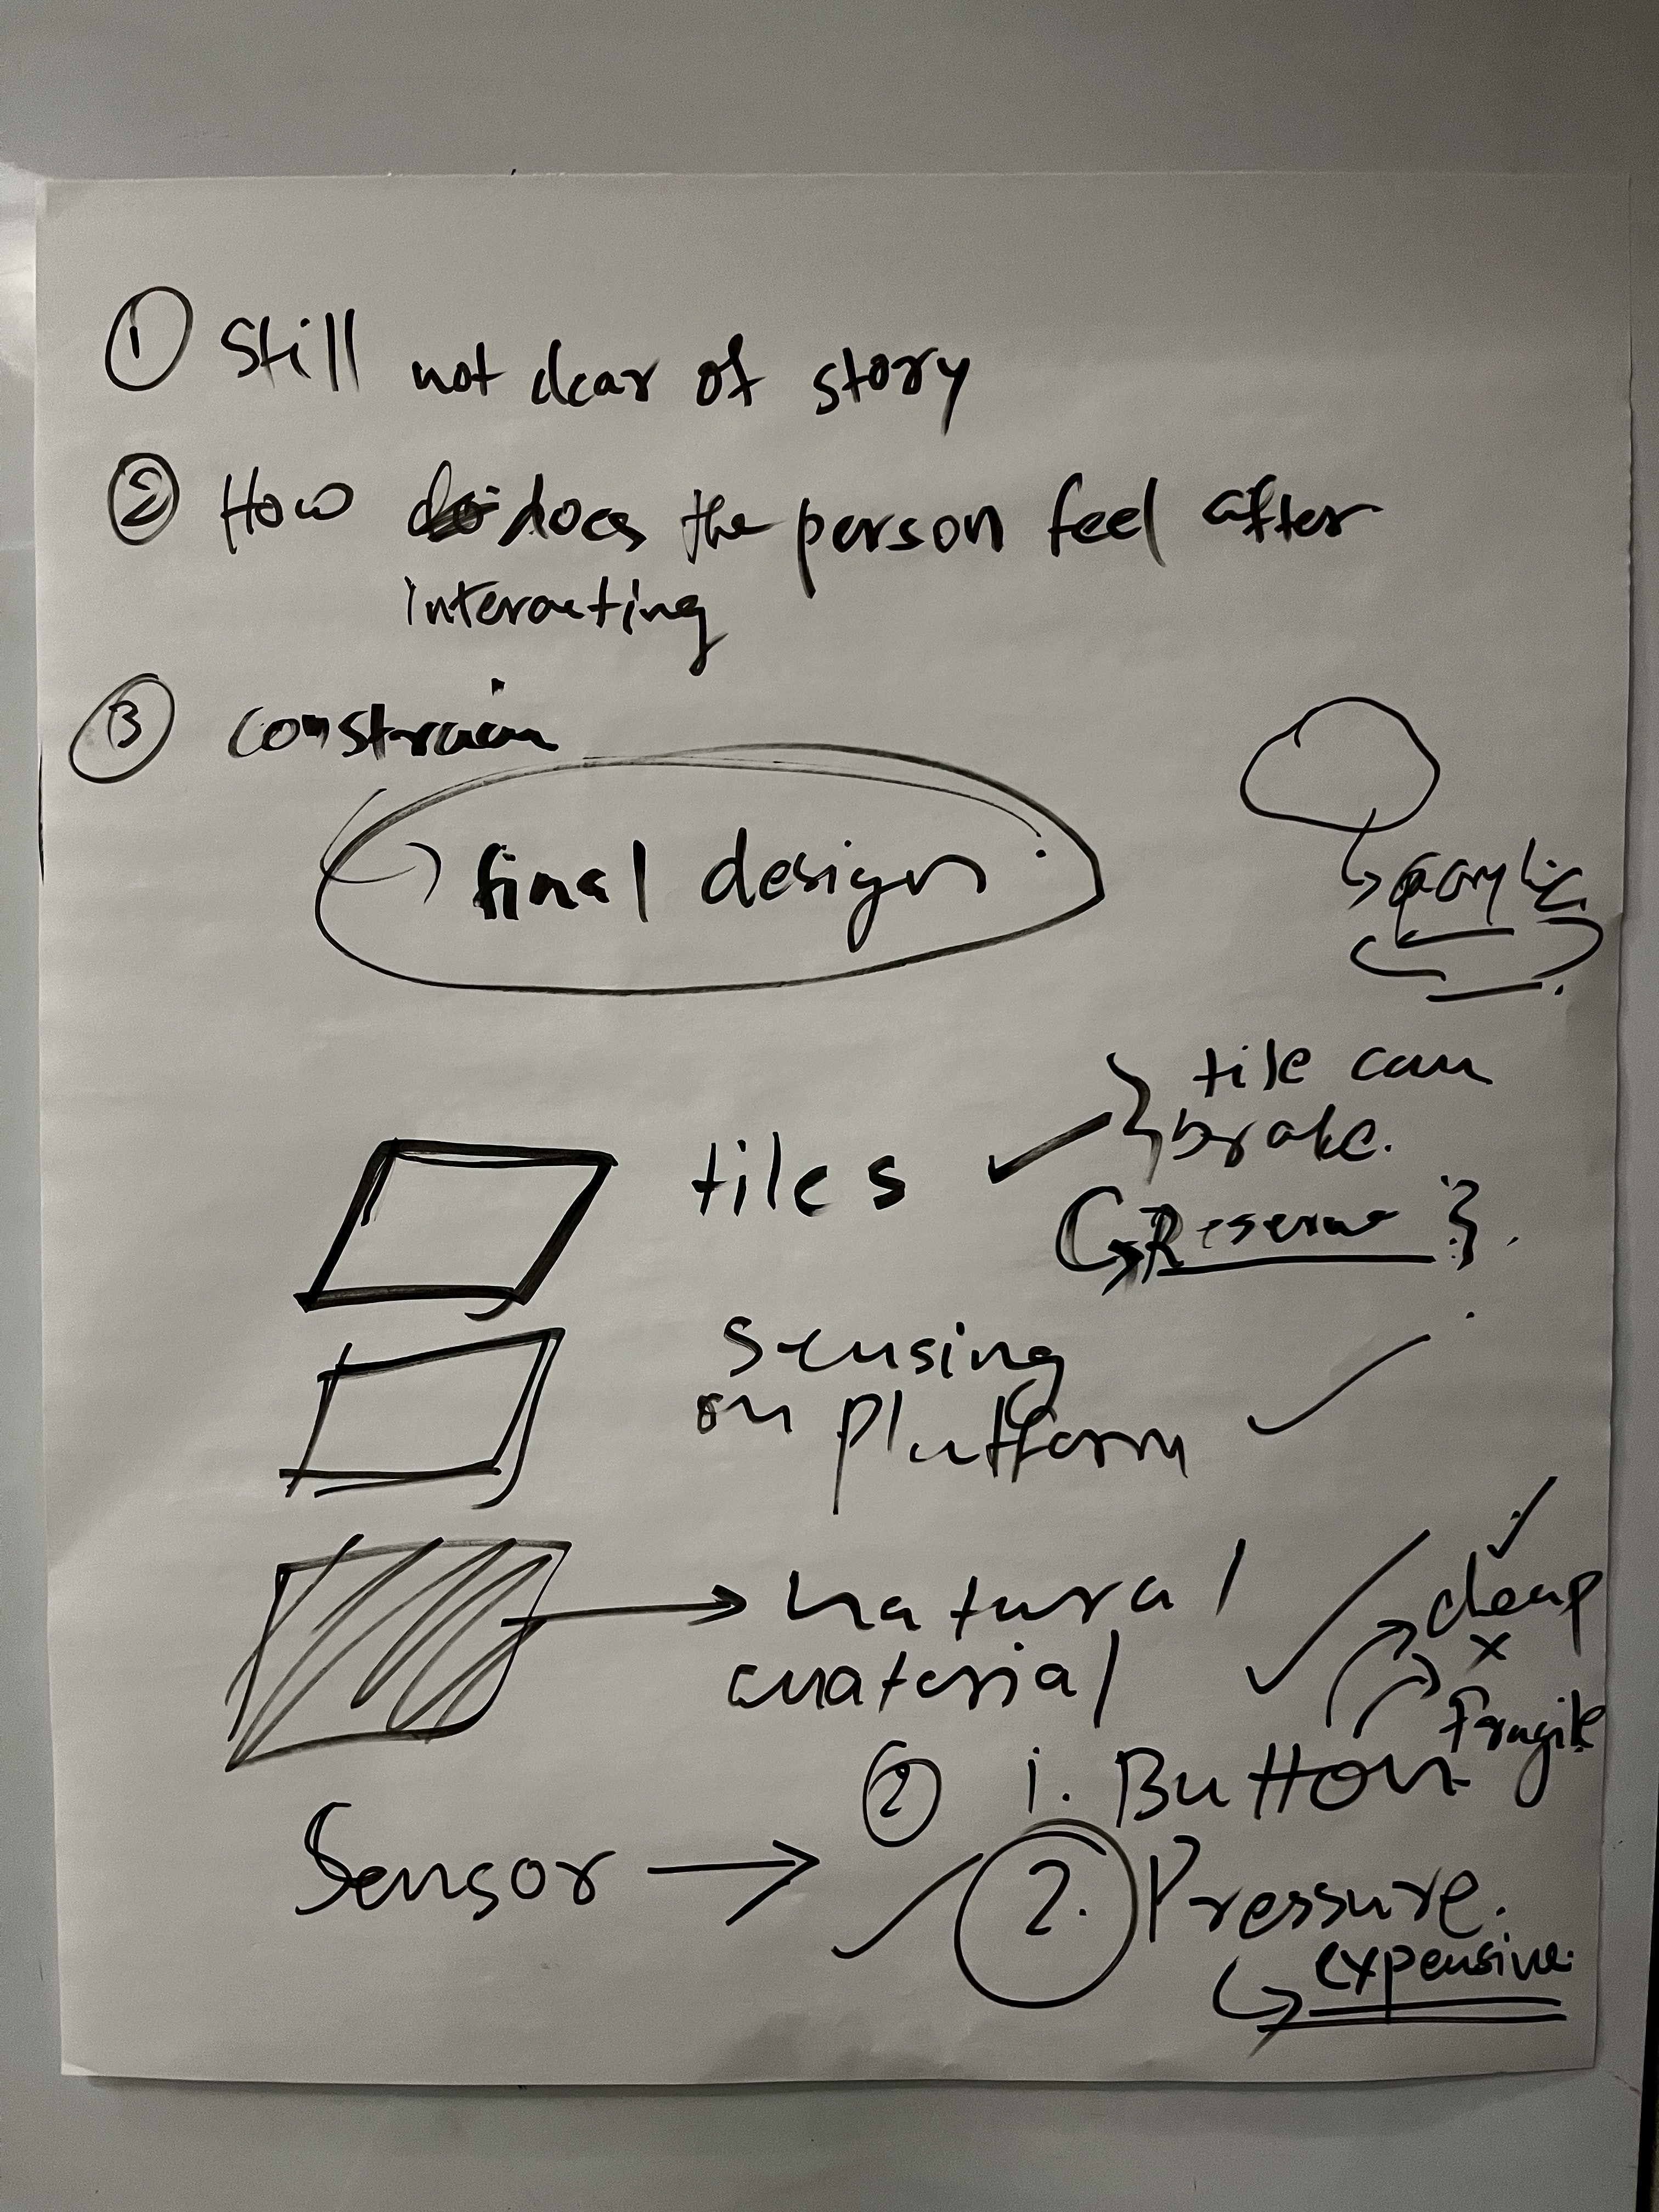 ① Still not clear of story
② How does the person feel after
interacting
③ constrain
final design
acrylic
tiles ✓ } tile can
brake.
Reserve }
Sensing
on platform ✓
natural
material ✓
✓
cheap
x
Fragile
Sensor → ② 1. Button
✓ 2. Pressure.
expensive.